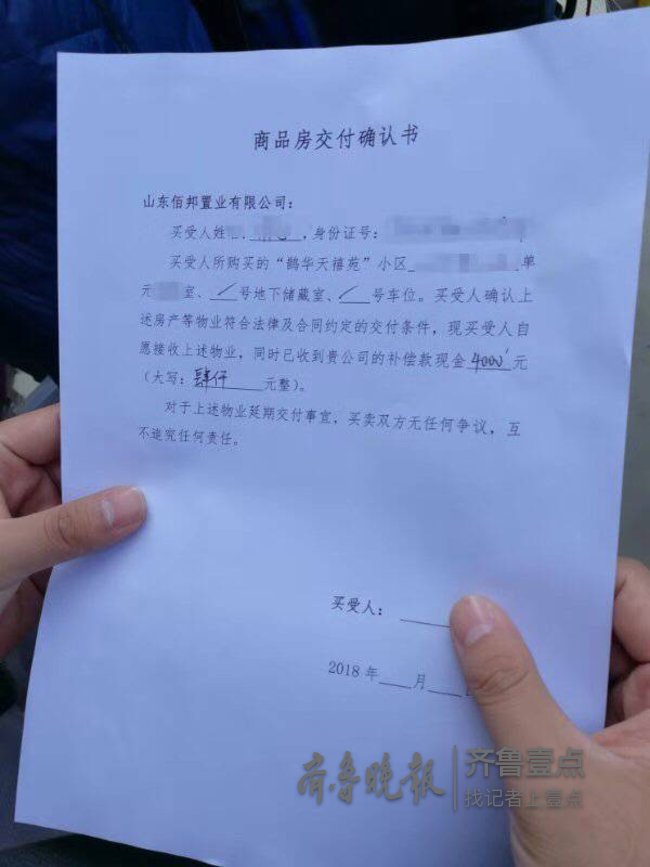 商品房交付确认书
山东佰邦置业有限公司：
买受人姓名 ，身份证号：
买受人所购买的“鹊华天禧苑”小区 单
元 室、／号地下储藏室、／号车位。买受人确认上
述房产等物业符合法律及合同约定的交付条件，现买受人自
愿接收上述物业，同时已收到贵公司的补偿款现金4000元
（大写：肆仟 元整）。
对于上述物业延期交付事宜，买卖双方无任何争议，互
不追究任何责任。
买受人：
2018年 月
齐鲁晚报 齐鲁壹点
找记者上壹点